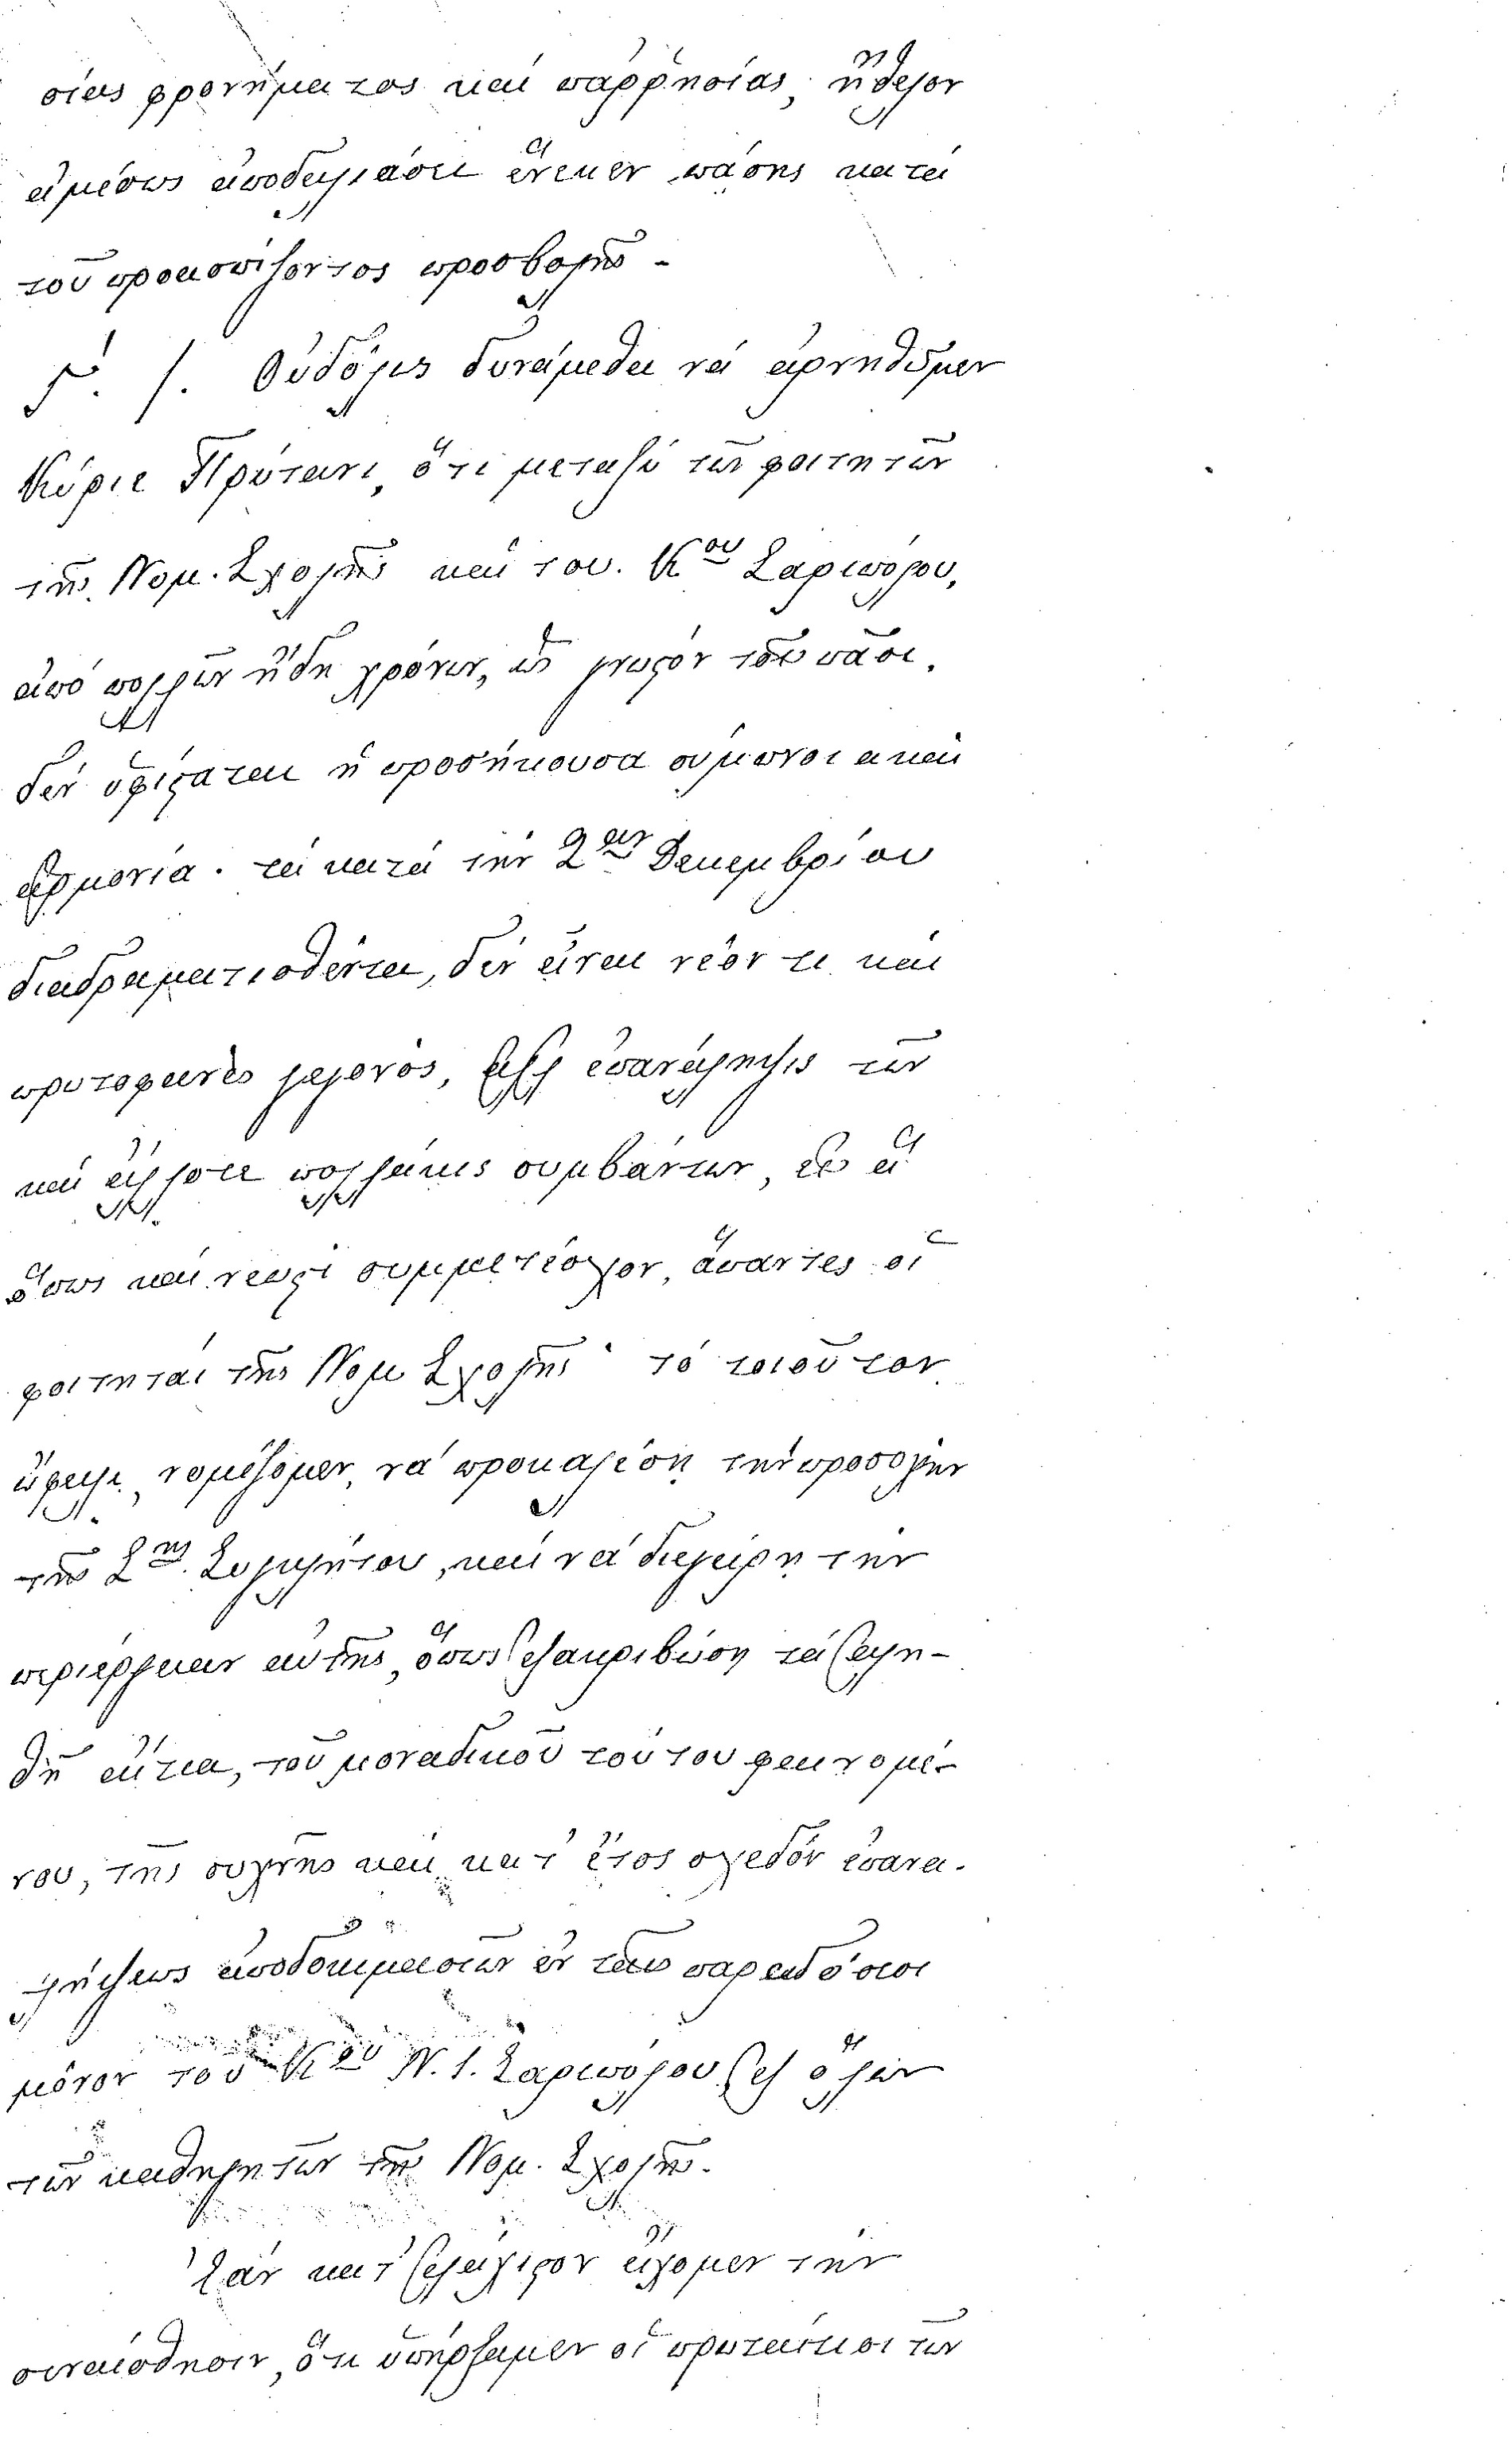 σίας φρονήματος καὶ παρρησίας, ἤθελον
ἀμέσως ἀποδειλιάσει ἕνεκεν πάσης κατὰ
τοῦ προκαθίζοντος προσβολῆς -
Γ΄. 1. Οὐδόλως δυνάμεθα νὰ ἀρνηθῶμεν
Κύριε Πρύτανι, ὅτι μεταξὺ τῶν φοιτητῶν
τῆς Νομ. Σχολῆς καὶ του. Κου Σαριπόλου,
ἀπὸ πολλῶν ἤδη χρόνων, ὡς γνωστὸν τοῖς πᾶσι,
δὲν ὑφίσταται ἡ προσήκουσα σύμπνοια καὶ
ἁρμονία. τὰ κατὰ τὴν 2αν Δεκεμβρίου
διαδραματισθέντα, δὲν εἶναι νέον τι καὶ
πρωτοφανὲς γεγονὸς, ἀλλ' ἐπανάληψις τῶν
καὶ ἄλλοτε πολλάκις συμβάντων, εἰς ἃ
ὅπως καὶ νῦν συμμετέσχον ἅπαντες οἱ
φοιτηταὶ τῆς Νομ Σχολῆς· τὸ τοιοῦτον
ὤφειλε, νομίζομεν, νὰ προκαλέσῃ τὴν προσοχὴν
τῆς Σης. Συγκλήτου, καὶ νὰ διεγείρῃ τὴν
περιέργειαν αὐτῆς, ὅπως ἐξακριβώσῃ τὰ ἀλη-
θῆ αἴτια, τοῦ μοναδικοῦ τούτου φαινομέ-
νου, τῆς συχνῆς καὶ κατ' ἔτος σχεδὸν ἐπανα-
λήψεως ἀποδοκιμασιῶν ἐν ταῖς παραδόσεσι
μόνον τοῦ Κου Ν. Ι. Σαριπόλου ἐξ ὅλων
τῶν καθηγητῶν τῆς Νομ. Σχολῆς.
Ἐὰν κατ' ἐλάχιστον εἴχομεν τὴν
συναίσθησιν, ὅτι ὑπήρξαμεν οἱ πρωταίτιοι τῶν